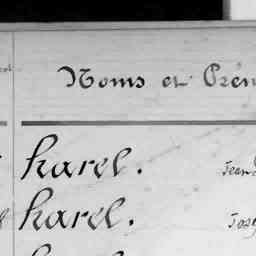 Noms et Prén
Karel. Jean
Karel. Jos